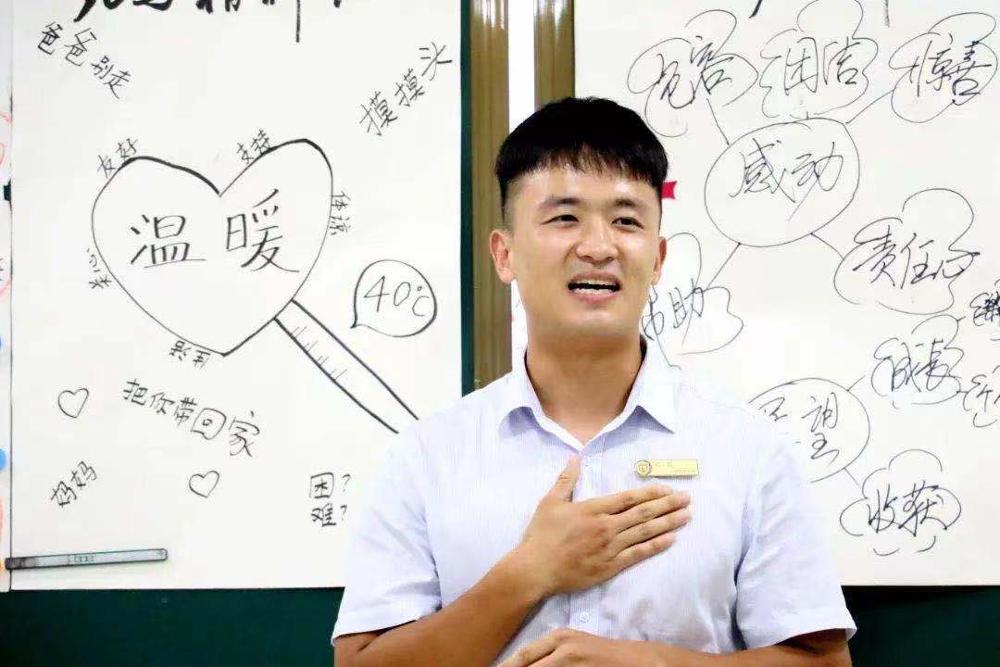 爸爸别走
摸摸摸头
友好
支持
体谅
温暖
关心
感到
40℃
把你带回家
妈妈
困?
难?
宽容
团结
惊喜
感动
责任心
帮助
成长
望
收获